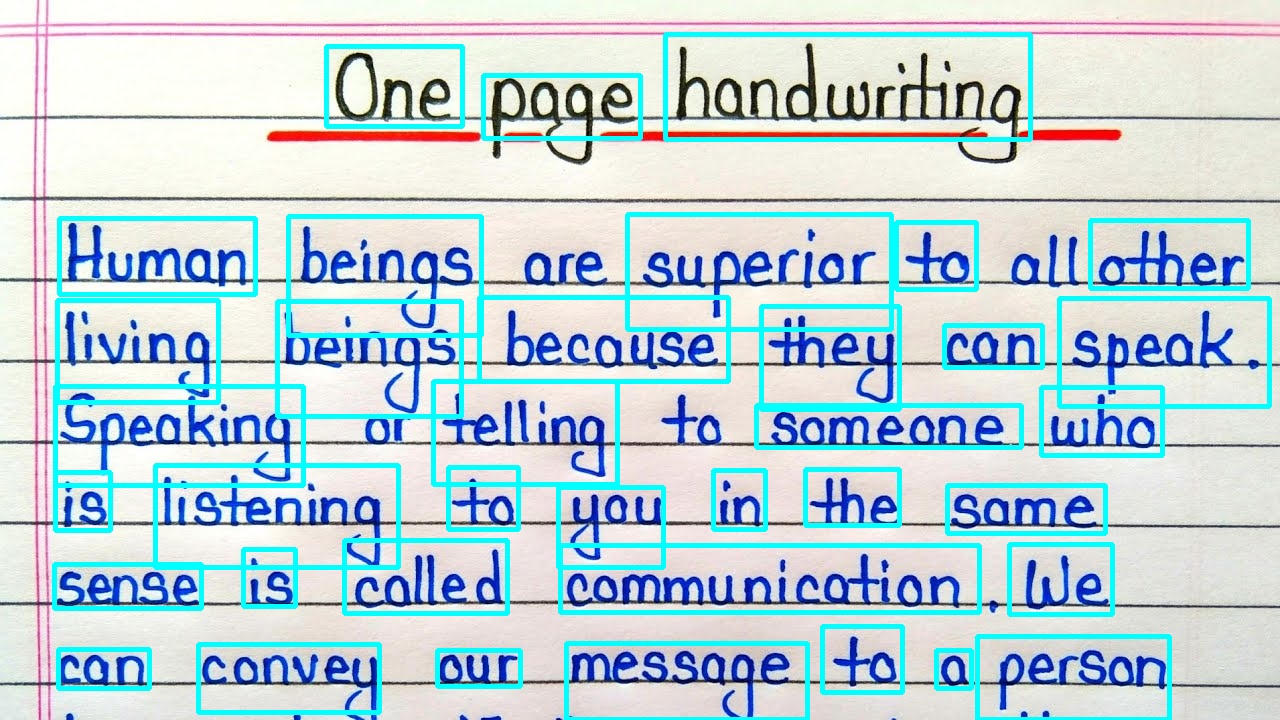 One page handwriting
Human beings are superior to all other
living beings because they can speak.
Speaking or telling to someone who
is listening to you in the same
sense is called communication. We
can convey our message to a person